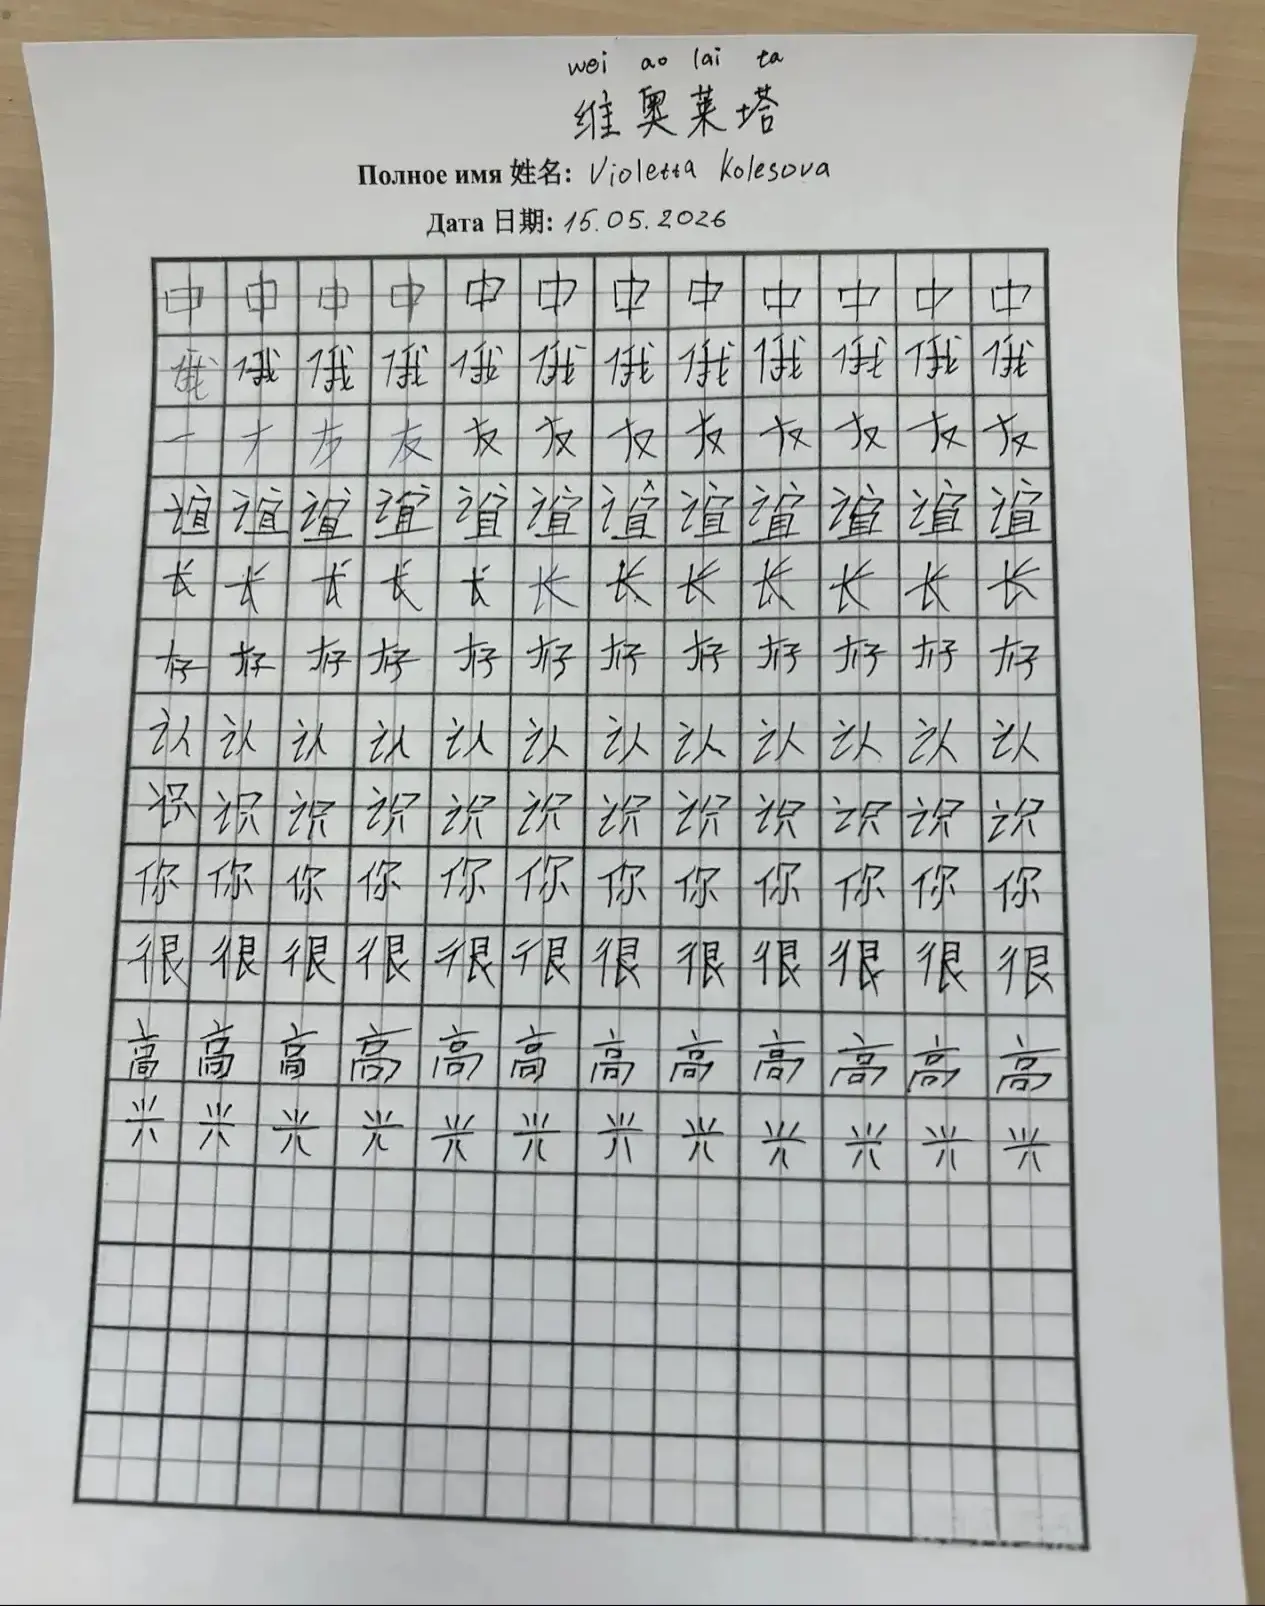 wei ao lai ta
维奥莱塔
Полное имя 姓名: Violetta Kolesova
Дата 日期: 15.05.2026
中 中 中 中 中 中 中 中 中 中 中 中
俄 俄 俄 俄 俄 俄 俄 俄 俄 俄 俄 俄
一 ナ 友 友 友 友 友 友 友 友 友
谊 谊 谊 谊 谊 谊 谊 谊 谊 谊 谊 谊
长 长 长 长 长 长 长 长 长 长 长 长
好 好 好 好 好 好 好 好 好 好 好 好
认 认 认 认 认 认 认 认 认 认 认 认
识 识 识 识 识 识 识 识 识 识 识 识
你 你 你 你 你 你 你 你 你 你 你 你
很 很 很 很 很 很 很 很 很 很 很 很
高 高 高 高 高 高 高 高 高 高 高 高
兴 兴 兴 兴 兴 兴 兴 兴 兴 兴 兴 兴